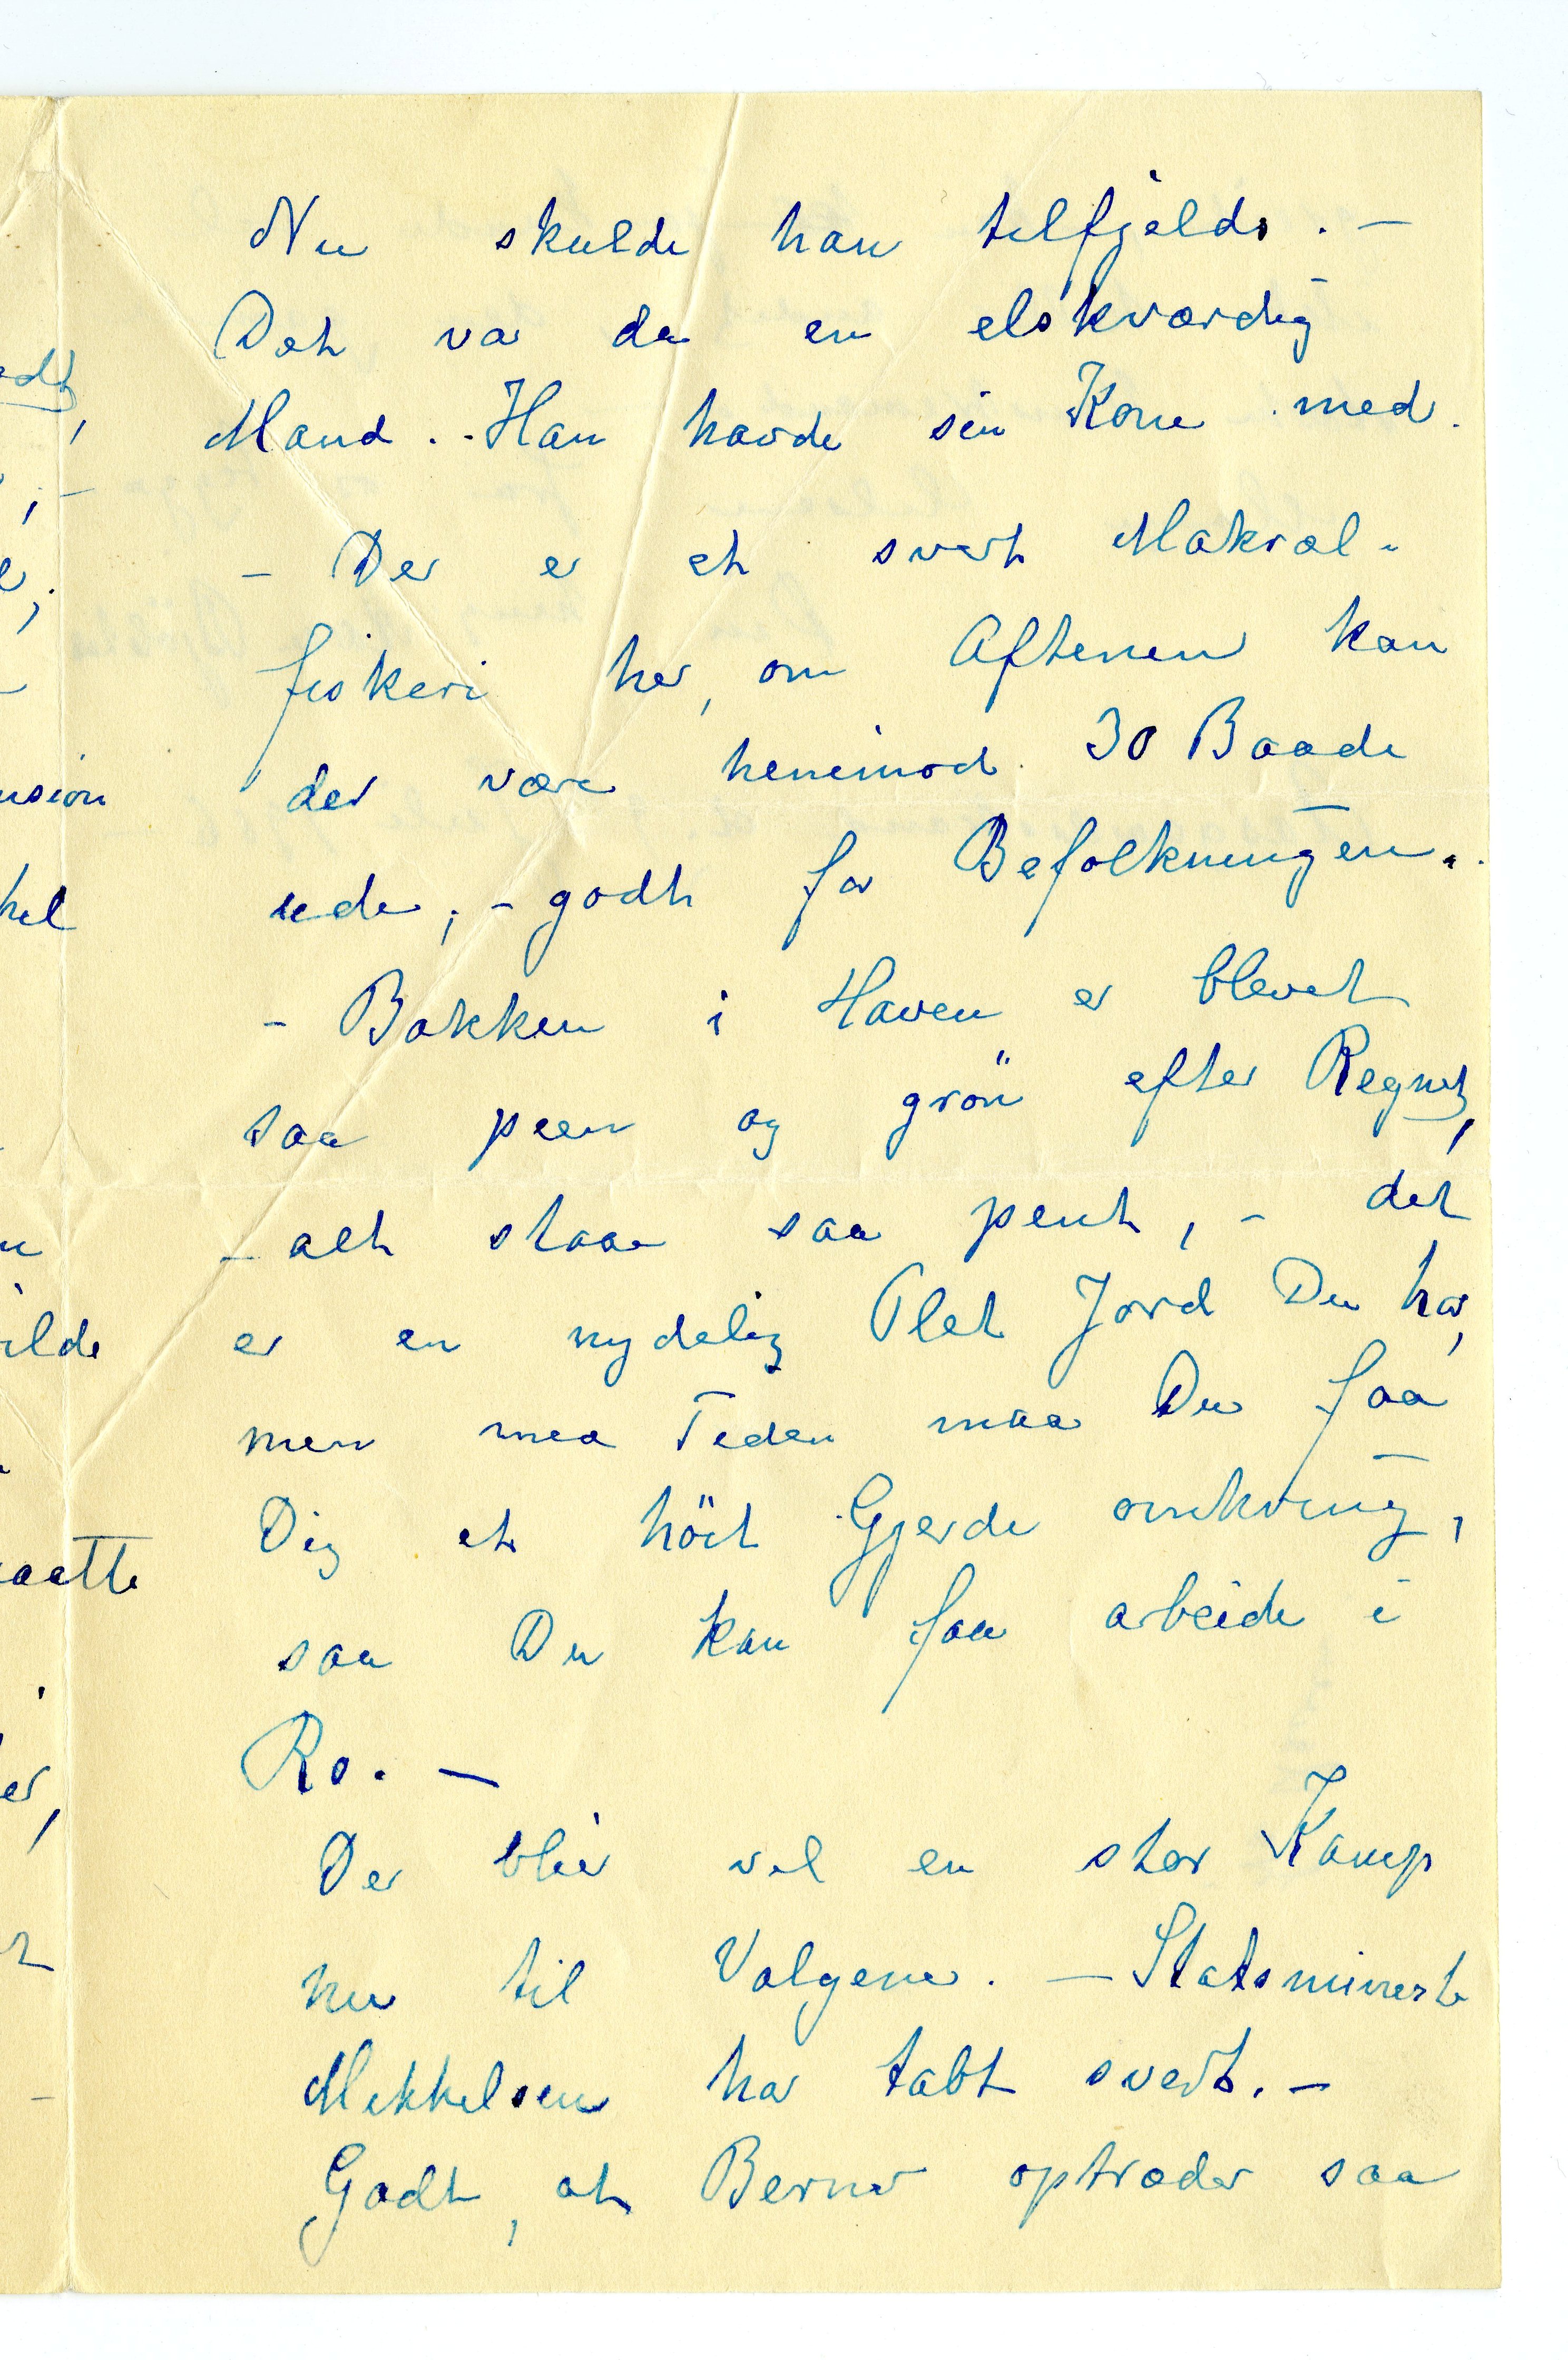 Nu skulde han tilfjelds. –
Det var da en elskværdig
Mand. . Han havde sin Kone med.
– Der er et svert Makrel-
fiskeri her, om Aftenen kan
der være henimod 30 Baade
ude; – godt for Befolkningen.
– Bakken i Haven er blevet
saa peen og grön efter Regnet,
– alt staar saa pent, – det
er en nydelig Plet Jord Du har,
men mea Tiden maa Du faa
Dig et höit Gjerde omkring,
saa Du kan faa arbeide i
Ro. –
Der blir vel en stor Kamp
nu til Valgene. – Statsminest
Mikkelsen har tabt svert. –
Godt, at Berner optræder saa
edt,
nsion
hel
ilde
aatte
er,